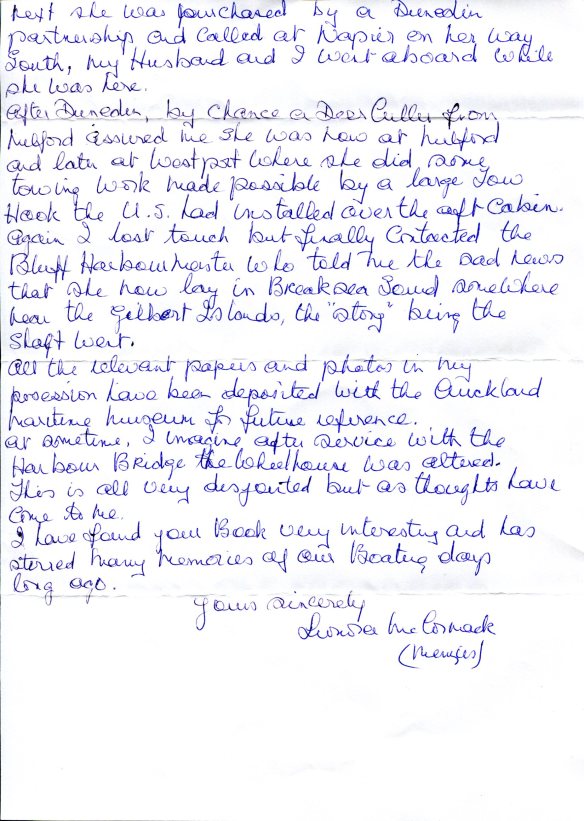 next she was purchased by a Dunedin
partnership and called at Napier on her way
South, my Husband and I went aboard while
she was here.
after Dunedin, by chance a Deer Culler from
Milford assured me she was now at Milford
and later at Westport where she did some
towing work made possible by a large Tow
Hook the U.S. had installed over the aft Cabin.
again I lost touch but finally Contacted the
Bluff Harbourmaster who told me the sad news
that she now lay in Breaksea Sound somewhere
near the Gilbert Islands, the "story" being the
Shaft went.
all the relevant papers and photos in my
posession have been deposited with the Auckland
maritime museum for future reference.
at sometime, I imagine after service with the
Harbour Bridge the Wheelhouse was altered.
This is all very disjointed but as thoughts have
Come to me.
I have found your Book very interesting and has
stirred many memories of our Boating days
long ago.
Yours sincerely
McCormack
(Menzies)